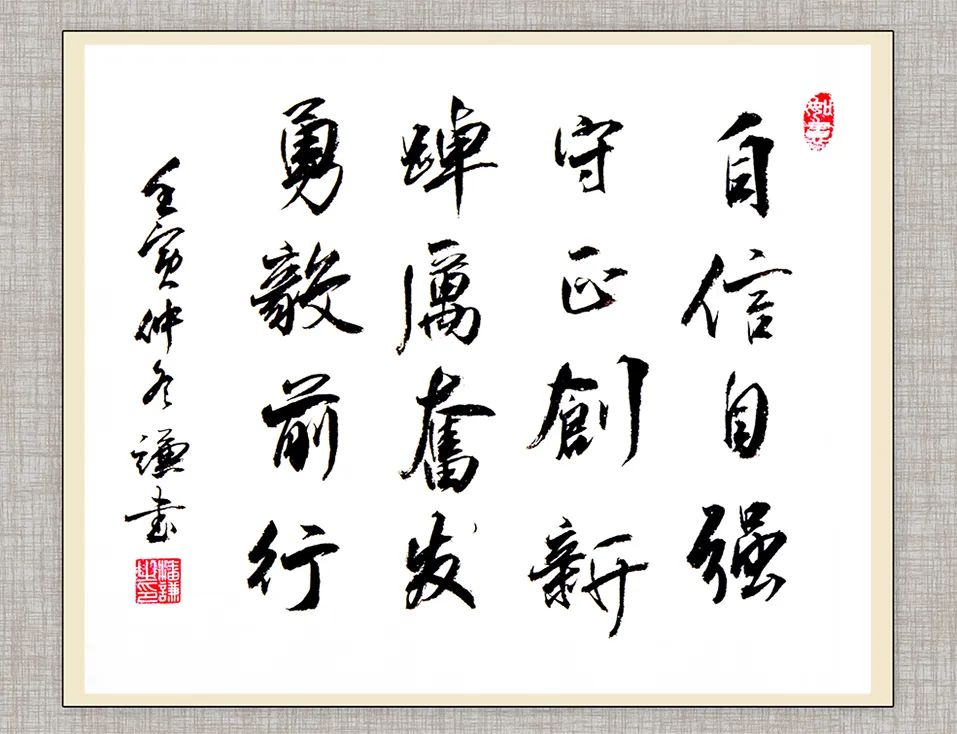 自信自强
守正創新
踔厲奮发
勇毅前行
壬寅仲冬謙書
潘謙之印